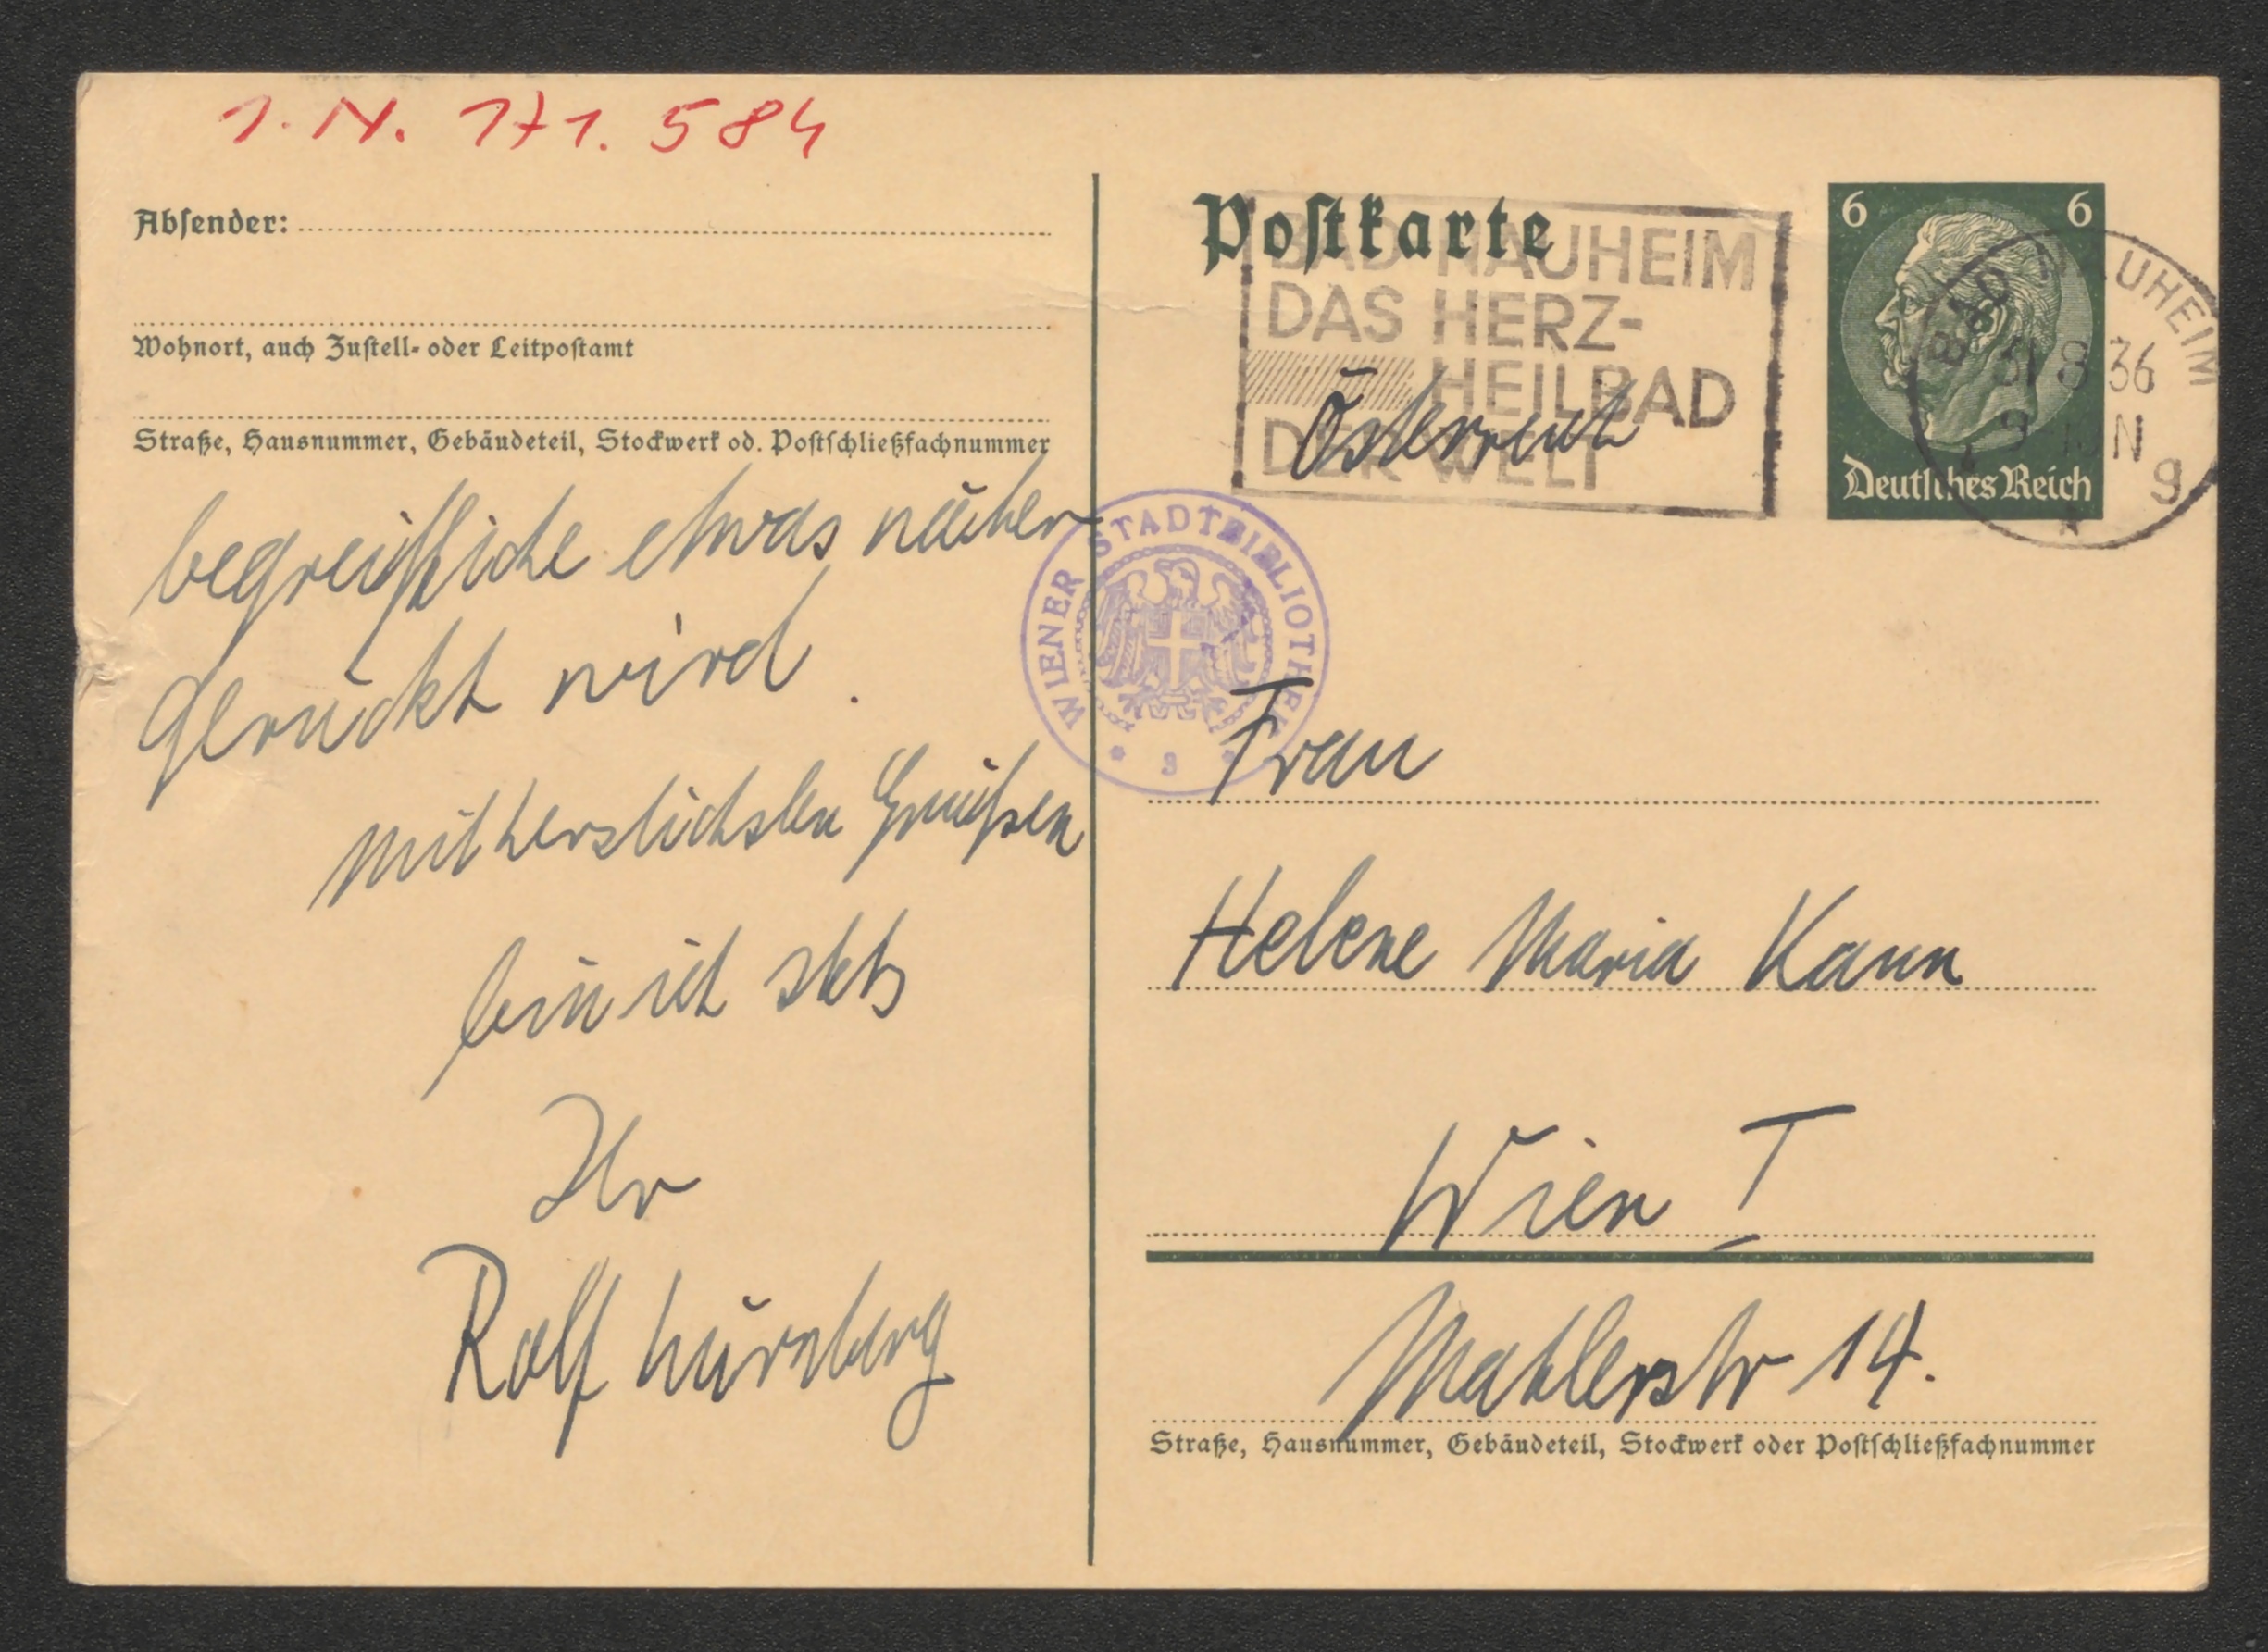 I. N. 171.584
Absender:
Wohnort, auch Zustell- oder Leitpostamt
Straße, Hausnummer, Gebäudeteil, Stockwerk od. Postschließfachnummer
begreifliche etwas näher
gerückt wird.
mit herzlichsten Grüßen
bin ich stets
Ihr
Rolf Nürnberg
Postkarte
BAD NAUHEIM
DAS HERZ-
HEILBAD
DER WELT
Österreich
6 6
Deutsches Reich
BAD NAUHEIM
31 8 36
9
N
g
WIENER STADTBIBLIOTHEK
3
Frau
Helene Maria Kann
Wien I
Mahlerstr 14.
Straße, Hausnummer, Gebäudeteil, Stockwerk oder Postschließfachnummer